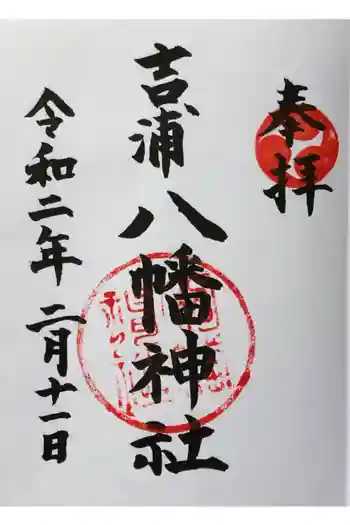 奉拝
吉浦
八幡神社
令和二年二月十一日